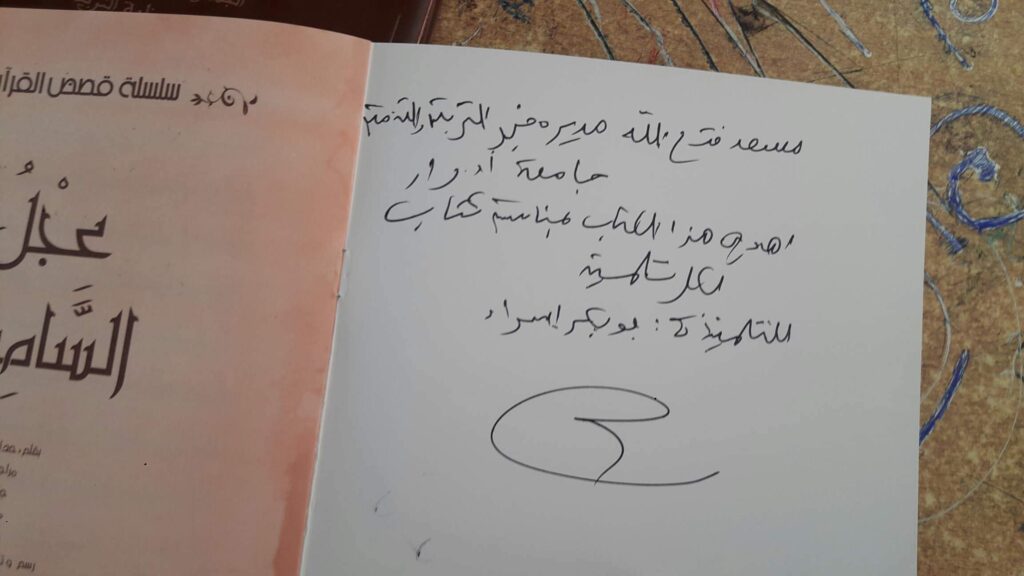 سلسلة قصص القرآ
عجْلُ
السَّامِ
بقلم
رسم و
مسعد فتح الله مدير مخبر التربة والتنمية
جامعة أدرار
اهدي هذا الكتاب بمناسبة كتاب
لكل تلميذ
للتلميذة : بوبكر اسراء